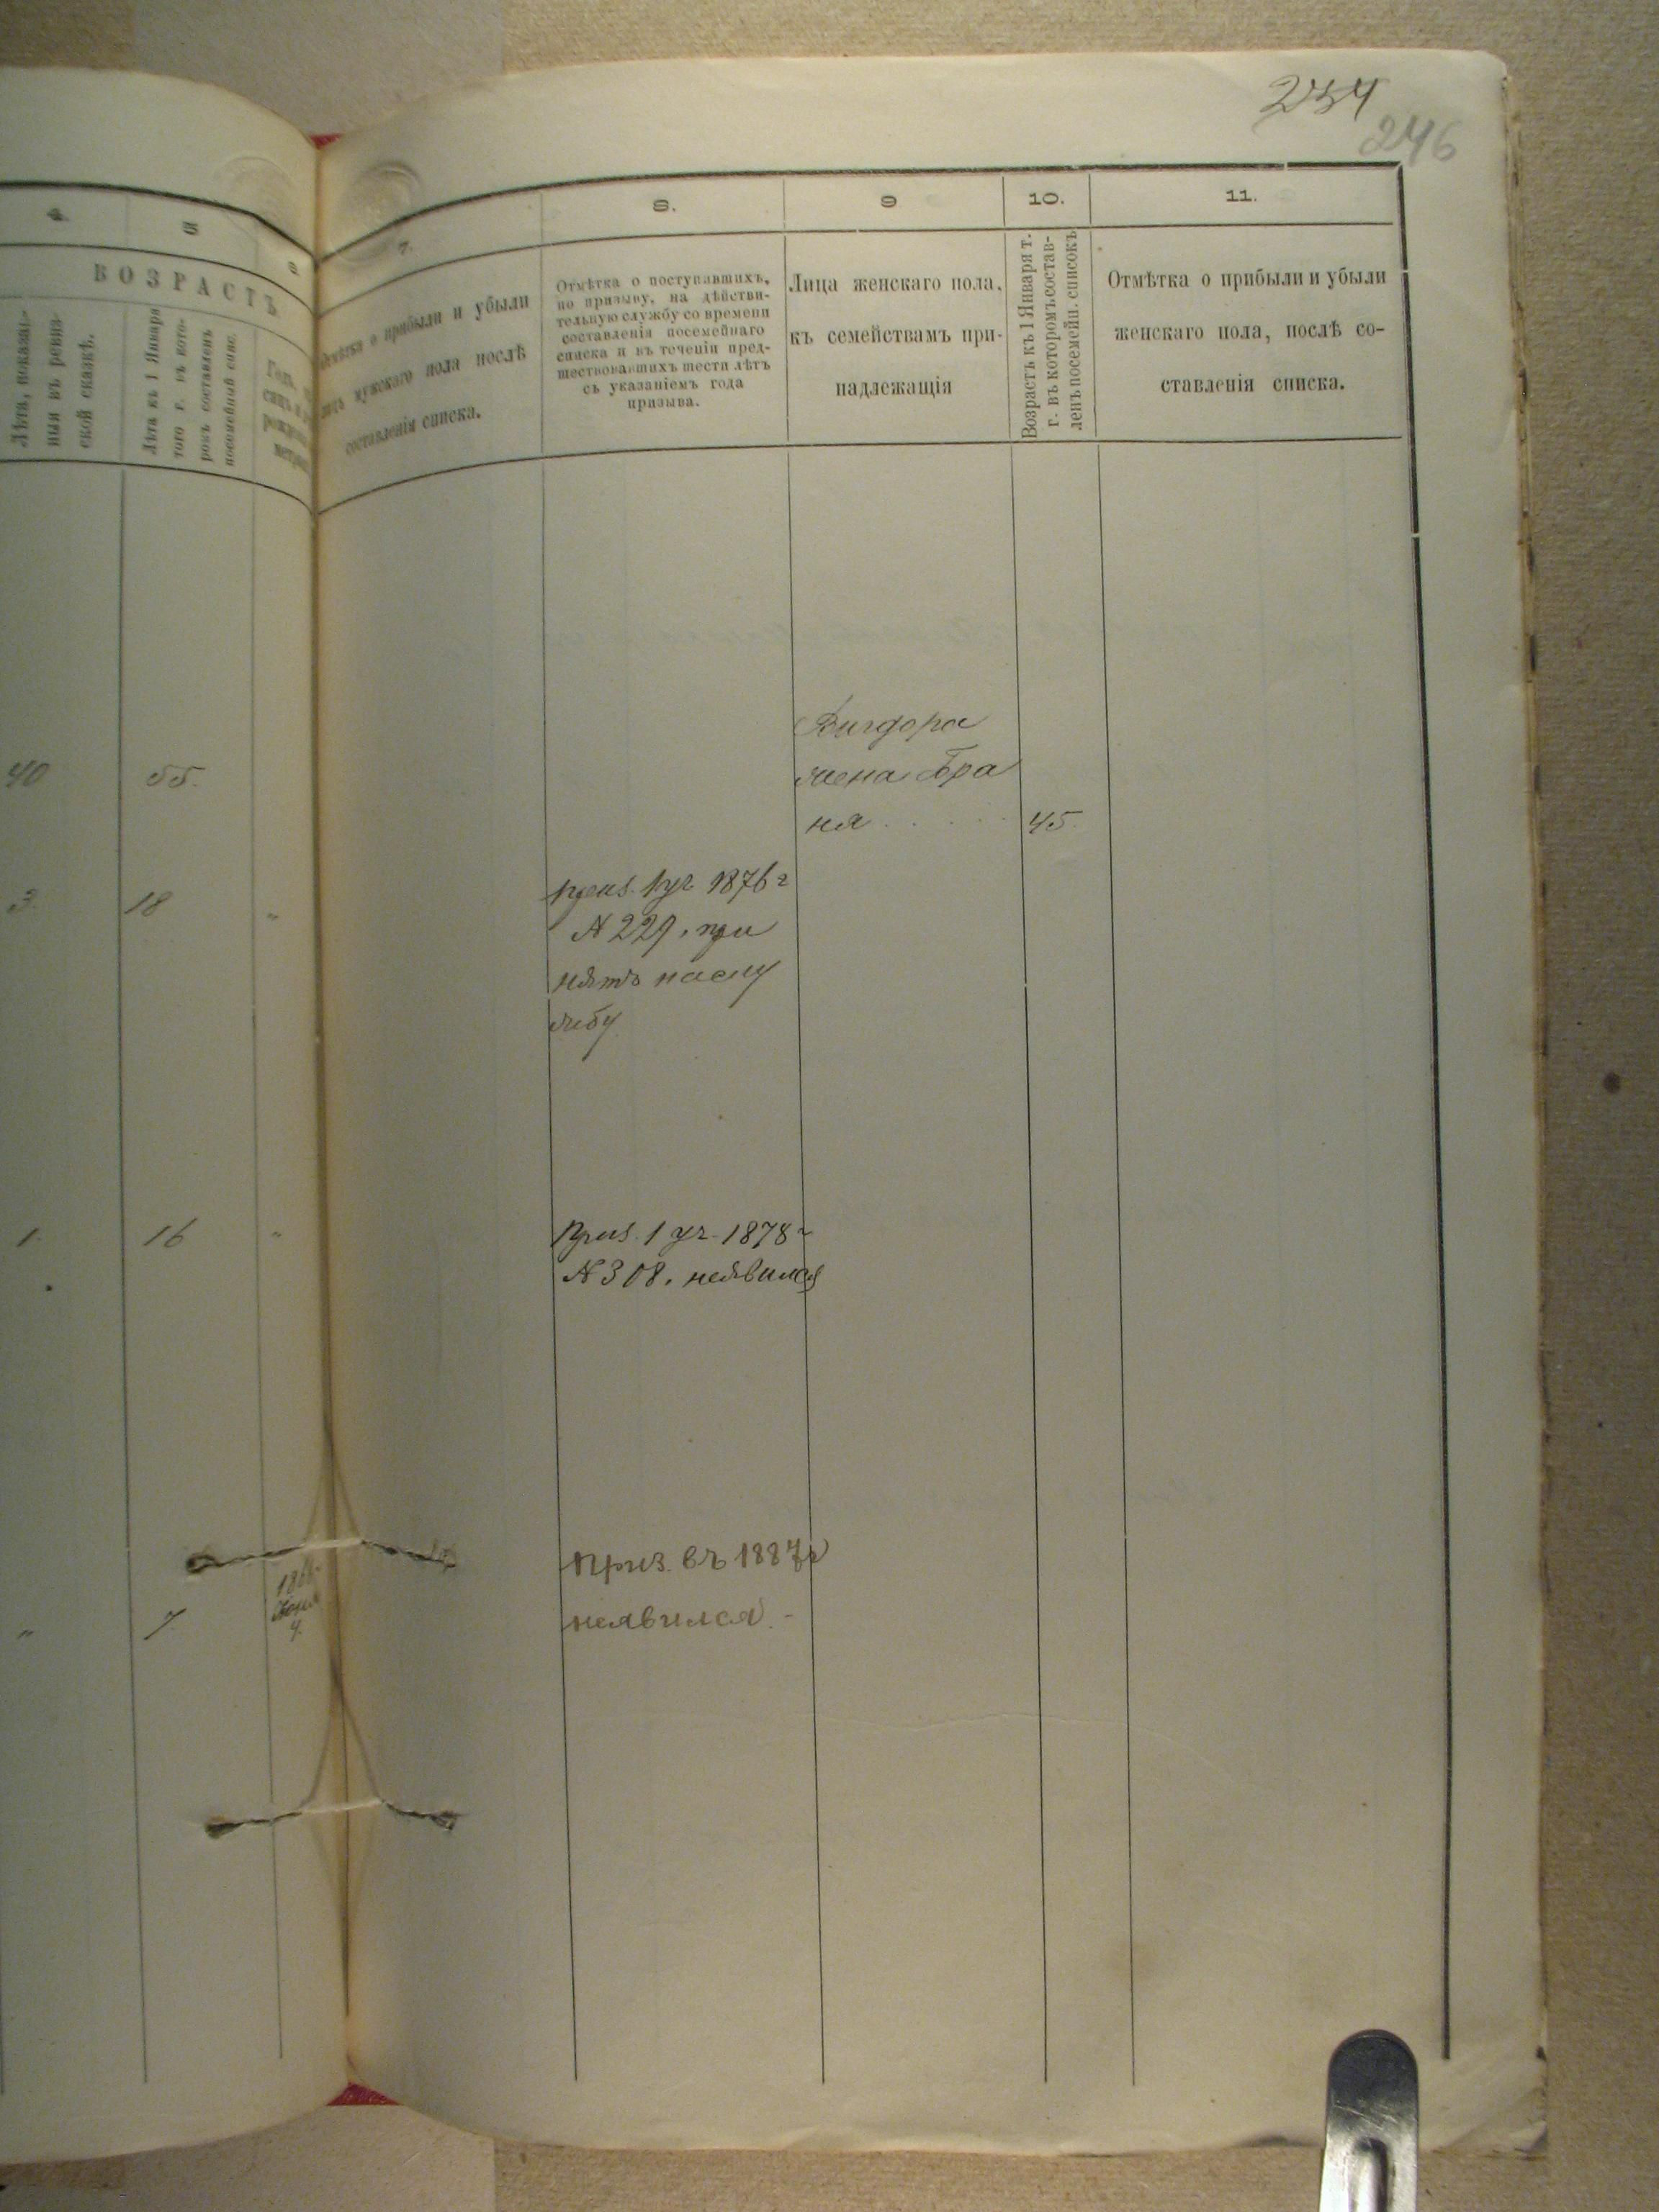 234
246
4.
5
6
ВОЗРАСТЪ
Лѣта, показан-
ныя въ ревиз-
ской сказкѣ.
Лѣта къ 1 Января
того г. въ кото-
ромъ составленъ
посемейный спис.
7.
8.
9
10.
11.
Отмѣтка о прибыли и убыли
лицъ мужскаго пола послѣ
составленія списка.
Отмѣтка о поступавшихъ,
по призыву, на дѣйстви-
тельную службу со времени
составленія посемейнаго
списка и въ теченіи пред-
шествовавшихъ шести лѣтъ
съ указаніемъ года
призыва.
Лица женскаго пола,
къ семействамъ при-
надлежащія
Возрастъ къ 1 Января т.
г. въ которомъ состав-
ленъ посемейн. списокъ
Отмѣтка о прибыли и убыли
женскаго пола, послѣ со-
ставленія списка.
Вигдора
жена Бра
ня . . . . . 45.
40 55.
3. 18 "
приз. 1 уч. 1876 г
№ 229. при
нятъ наслу
жбу
1. 16 "
Приз. 1 уч. 1878 г
№ 308. неявился
Приз. въ 1887 г
неявился. -
" 7
4.